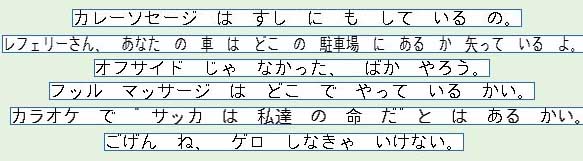 カレーソセージ は すし に も して いる の。
レフェリーさん、 あなた の 車 は どこ の 駐車場 に ある か 失って いる よ。
オフサイド じゃ なかった、 ばか やろう。
フッル マッサージ は どこ で やって いる かい。
カラオケ で ¨サッカ は 私達 の 命 だ¨と は ある かい。
ごげん ね、 ゲロ しなきゃ いけない。